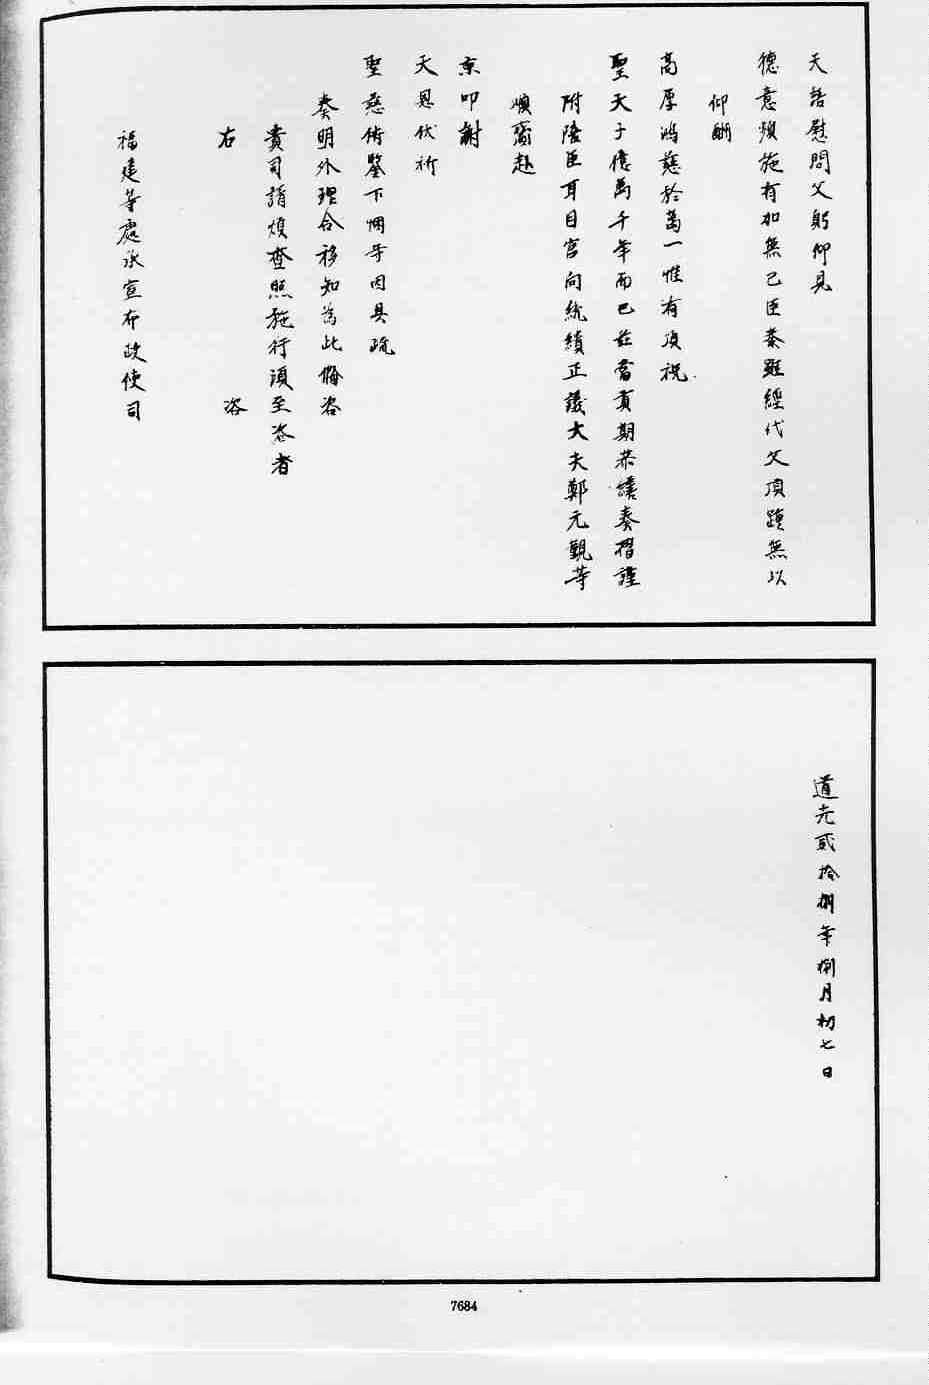 天語慰問父躬仰見
德意煩施有加無已臣泰雖經代父頂踵無以
仰酬
高厚鴻慈於萬一惟有頂祝
聖天子億萬千年而已茲當貢期恭繕奏摺謹
附陪臣耳目官向統績正議大夫鄭元觀等
順齎赴
京叩謝
天恩伏祈
聖慈俯鑒下悃等因具疏
奏明外理合移知為此備咨
貴司請煩查照施行須至咨者
右咨
福建等處承宣布政使司
道光貳拾捌年捌月初七日
7684